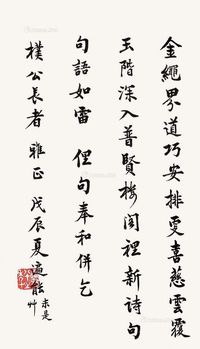 金繩界道巧安排更喜慈雲覆
玉階深入普賢樓閣裡新詩句
句語如雷 俚句奉和併乞
樸公長者 雅正 戊辰夏遍能
未是
艸